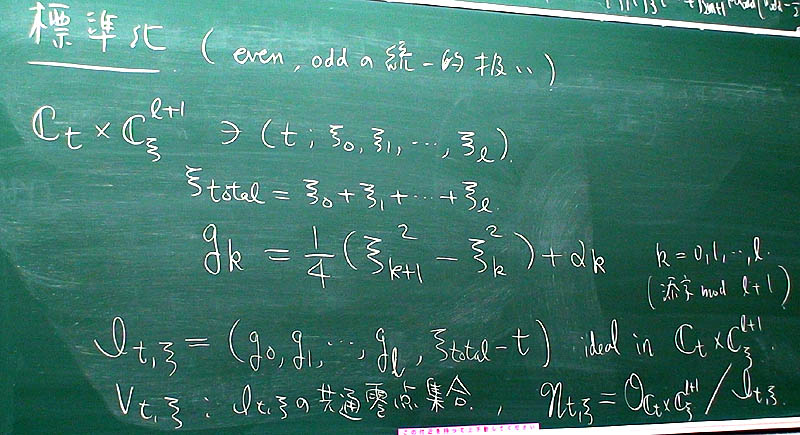 標準化 (even, odd の統一的扱い)
ℂ_t × ℂ_ξ^{l+1} ∋ (t; ξ_0, ξ_1, ⋯, ξ_l).
ξ_total = ξ_0 + ξ_1 + ⋯ + ξ_l.
g_k = 1/4 (ξ_{k+1}^2 − ξ_k^2) + α_k   k = 0, 1, ⋯, l.
(添字 mod l+1)
I_{t,ξ} = (g_0, g_1, ⋯, g_l, ξ_total − t) ideal in ℂ_t × ℂ_ξ^{l+1}.
V_{t,ξ} : I_{t,ξ} の共通零点集合. , η_{t,ξ} = O_{ℂ_t×ℂ_ξ^{l+1}} / I_{t,ξ}.